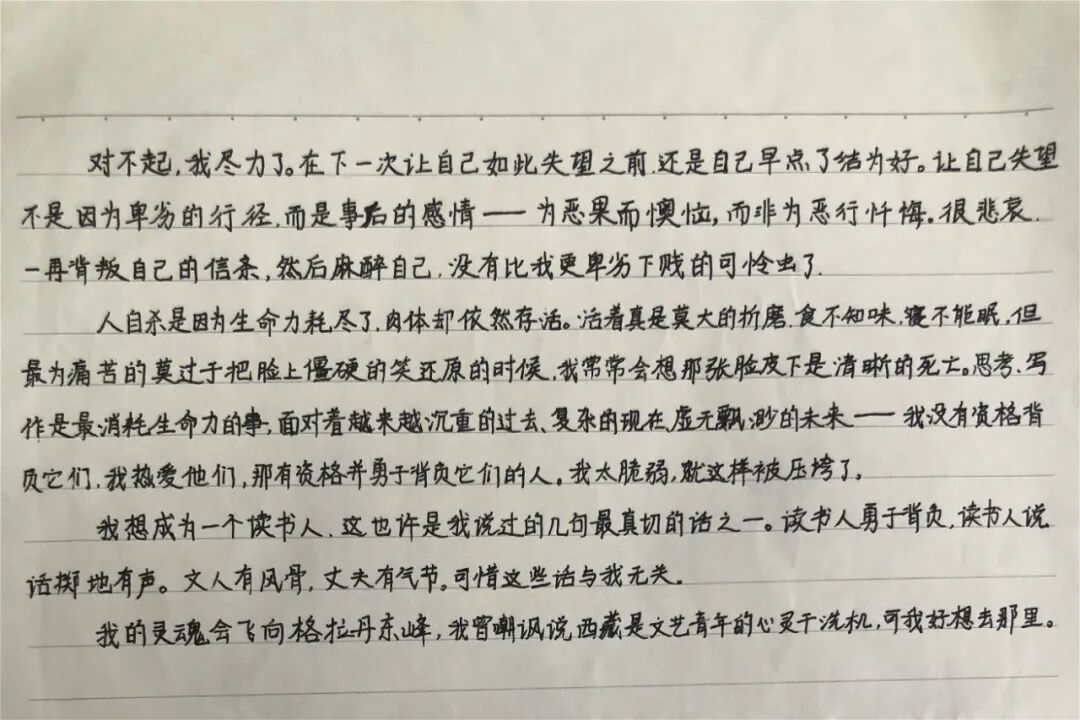 对不起,我尽力了。在下一次让自己如此失望之前,还是自己早点了结为好。让自己失望
不是因为卑劣的行径,而是事后的感情——为恶果而懊恼,而非为恶行忏悔。很悲哀.
一再背叛自己的信条,然后麻醉自己.没有比我更卑劣下贱的可怜虫了.
人自杀是因为生命力耗尽了,肉体却依然存活。活着真是莫大的折磨.食不知味,寝不能眠,但
最为痛苦的莫过于把脸上僵硬的笑还原的时候,我常常会想那张脸皮下是清晰的死亡。思考、写
作是最消耗生命力的事,面对着越来越沉重的过去、复杂的现在、虚无飘渺的未来——我没有资格背
负它们,我热爱他们,那有资格并勇于背负它们的人。我太脆弱,就这样被压垮了。
我想成为一个读书人、这也许是我说过的几句最真切的话之一。读书人勇于背负,读书人说
话掷地有声。文人有风骨,丈夫有气节,可惜这些话与我无关。
我的灵魂会飞向格拉丹东峰,我曾嘲讽说西藏是文艺青年的心灵干洗机,可我好想去那里。